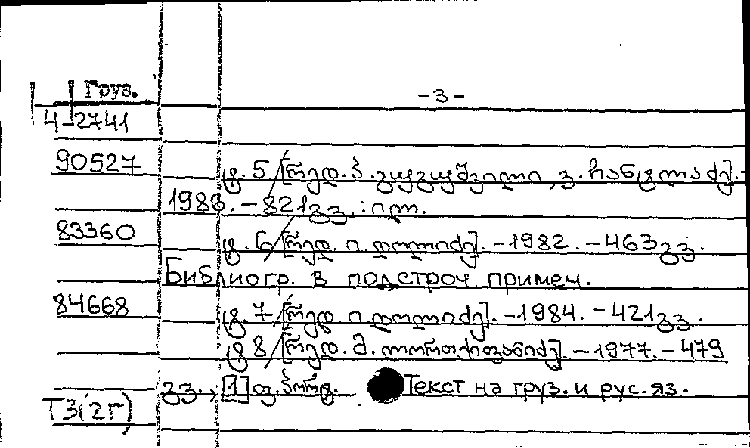 Груз.
-3-
4-2741
90527
ტ. 5 [რედ. პ. გუგუშვილი, ვ. ჩანტლაძე]. -
1983. - 821 გვ. : ილ.
83360
ტ. 6 [რედ. ი. დოლიძე]. - 1982. - 463 გვ.
Библиогр. в подстроч примеч.
84668
ტ. 7 [რედ. ი. დოლიძე]. - 1984. - 421 გვ.
ტ. 8 [რედ. მ. ლორთქიფანიძე]. - 1977. - 479
გვ., [1] ფ. პორტ.
Текст на груз. и рус. яз.
Т3(2Г)